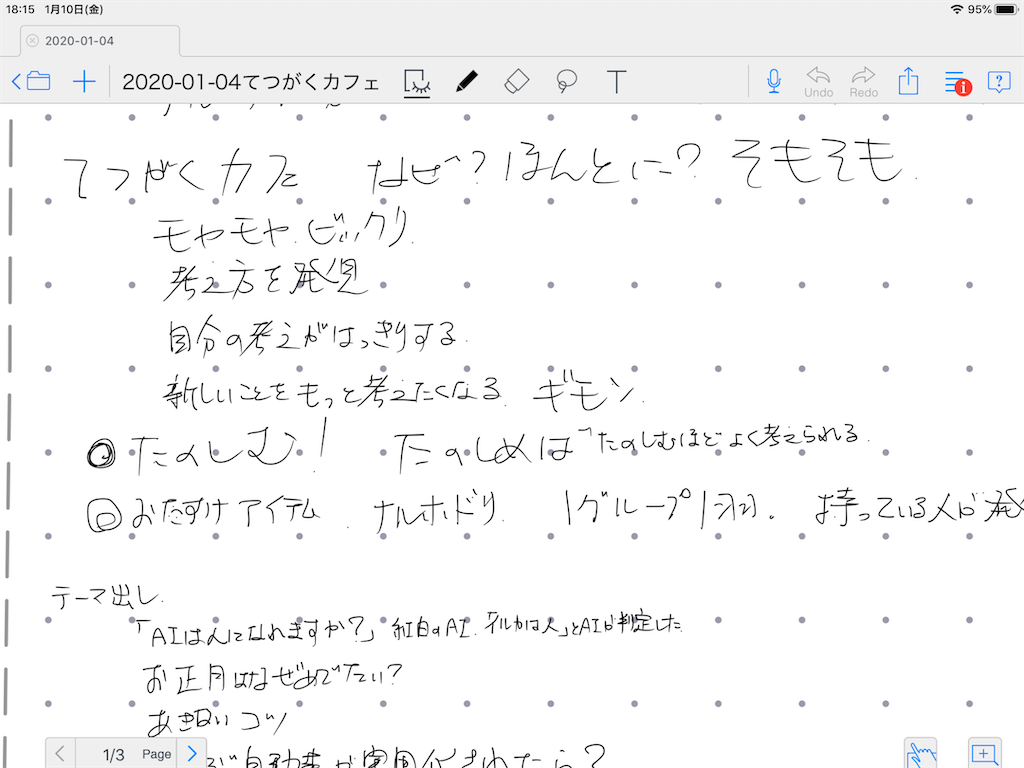 18:15 1月10日(金) 95%
2020-01-04
2020-01-04てつがくカフェ
Undo Redo
てつがくカフェ なぜ？ほんとに？そもそも.
モヤモヤ.ビックリ.
考え方を発見
自分の考えがはっきりする.
新しいことをもっと考えたくなる. ギモン.
◎たのしむ！ たのしめは"たのしむほどよく考えられる.
◎おたすけアイテム.ナルホドリ. 1グループ1羽. 持っている人が発
テーマ出し.
「AIは人になれますか？」紅白のAI. 人」とAIが判定した.
お正月はなぜめでたい？
コツ
1/3 Page 自動車が実用化されたら？